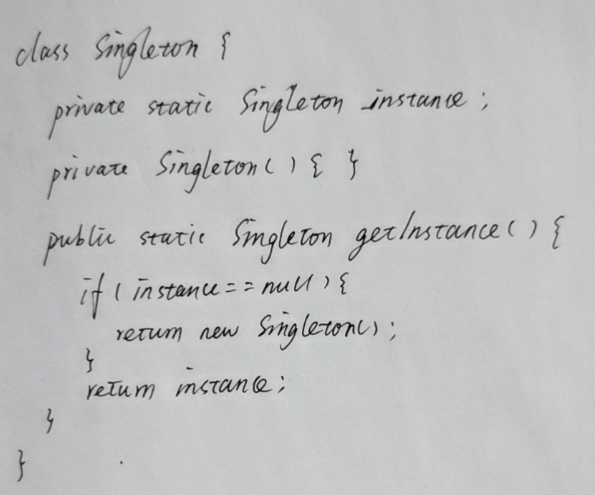 class Singleton {
private static Singleton instance;
private Singleton() { }
public static Singleton getInstance() {
if (instance == null) {
return new Singleton();
}
return instance;
}
}